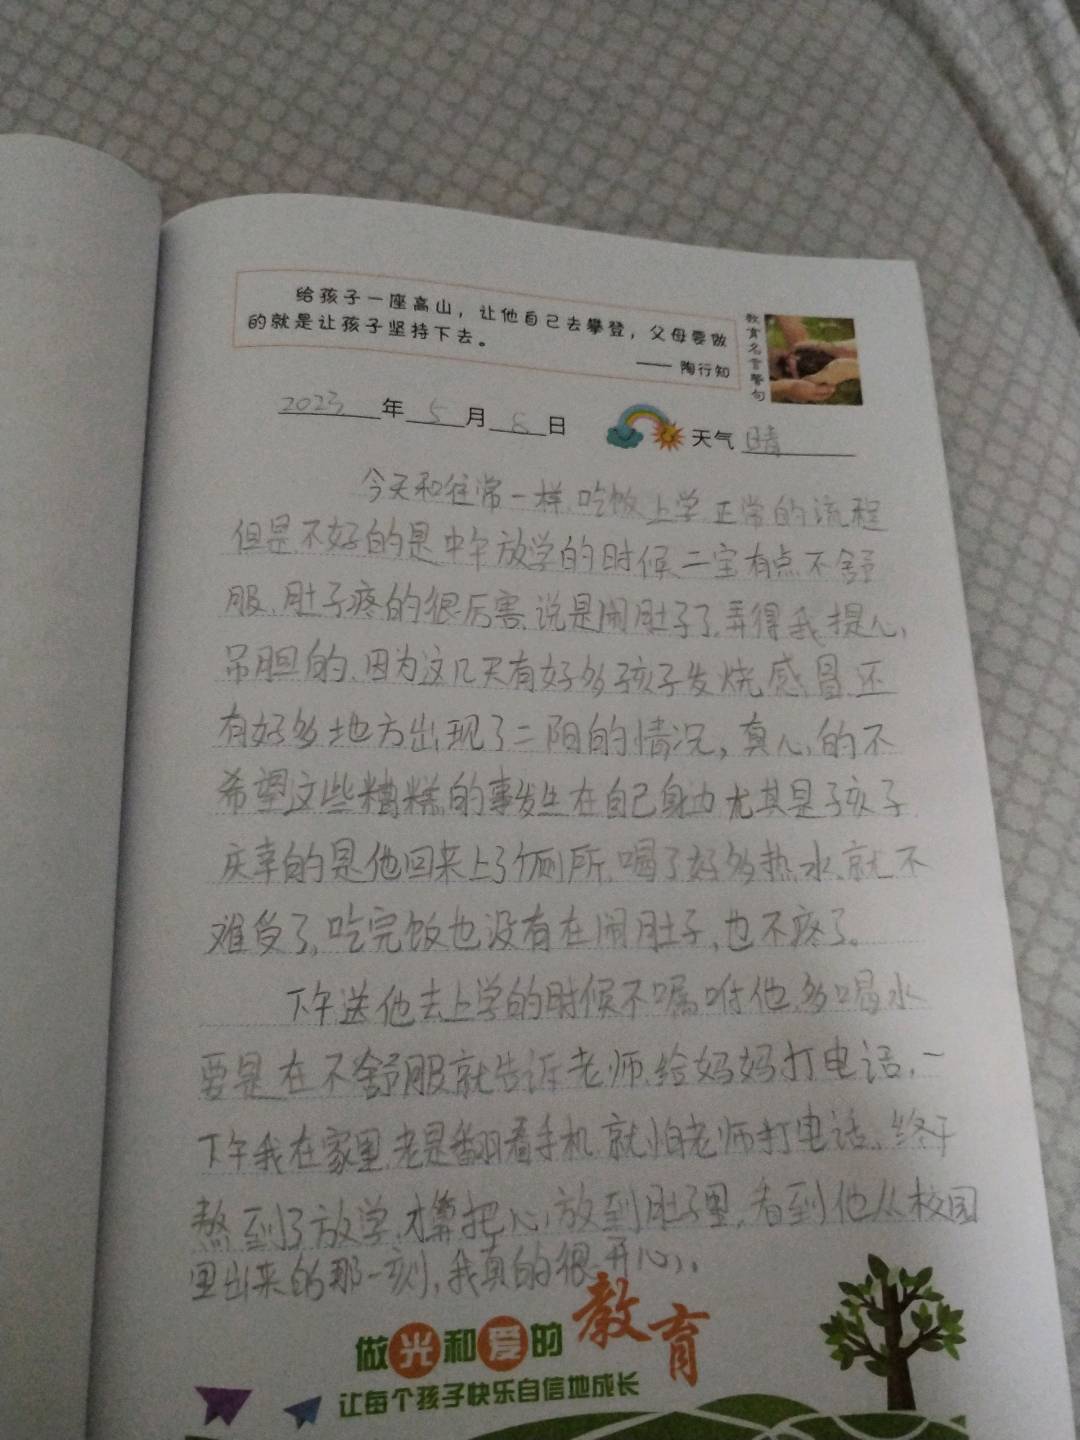 给孩子一座高山，让他自己去攀登，父母要做
的就是让孩子坚持下去。
—— 陶行知
教育名言警句
2023年5月8日
天气 晴
今天和往常一样.吃饭上学.正常的流程
但是.不好的是中午放学的时候.二宝有点不舒
服.肚子疼的很厉害.说是闹肚子了.弄得我提心
吊胆的.因为这几天有好多孩子发烧感冒.还
有好多地方出现了二阳的情况，真心的不
希望这些糟糕的事发生在自己身边尤其是孩子.
庆幸的是他回来上了个厕所.喝了好多热水.就不
难受了,吃完饭也没有在闹肚子,也不疼了。
下午送他去上学的时候不嘱咐他.多喝水
要是在不舒服就告诉老师.给妈妈打电话,一
下午我在家里.老是翻看手机.就怕老师打电话.终于
熬到了放学.才算把心放到肚子里,看到他从校园
里出来的那一刻,我真的很开心。
做光和爱的教育
让每个孩子快乐自信地成长